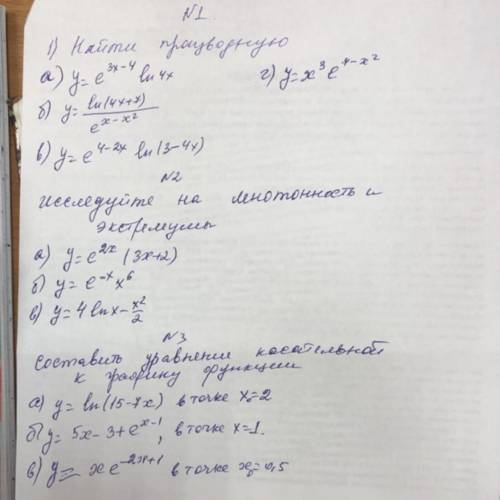 №1
1) Найти процводную
а) y = e^{3x-4} ln 4x
г) y = x³ e^{4-x²}
б) y = ln(4x+x) / e^{x-x²}
в) y = e^{4-2x} ln(3-4x)
№2
исследуйте на монотонность и
экстремумы
а) y = e^{2x} (3x+2)
б) y = e^{-x} x⁶
в) y = 4 ln x - x²/2
№3
составить уравнении касательной
к графику функции
а) y = ln(15-7x) в точке x₀=2
б) y = 5x-3+e^{x-1}, в точке x=1.
в) y = x e^{-2x+1} в точке x₀=0,5